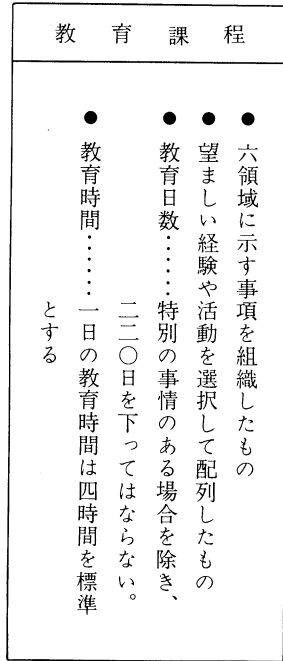 教育課程
● 六領域に示す事項を組織したもの
● 望ましい経験や活動を選択して配列したもの
● 教育日数……特別の事情のある場合を除き、
二二〇日を下ってはならない。
● 教育時間……一日の教育時間は四時間を標準
とする